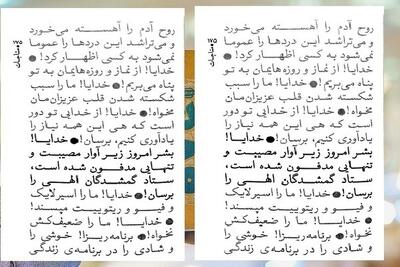 مناجات
روح آدم را آهسته می‌خورد
و می‌تراشد این دردها را عموما
نمی‌شود به کسی اظهار کرد! ●
خدایا! از نماز و روزه‌هایمان به تو
پناه می‌بریم! ● خدایا! ما را سبب
شکسته شدن قلب عزیزان‌مان
مخواه! ● خدایا! از خدایی تو دور
است که هی این همه نیاز را
یادآوری کنیم، برسان! ● خدایا!
بشر امروز زیر آوار مصیبت و
تنهایی مدفون شده است،
ستاد گمشدگان الهی را
برسان! ● خدایا! ما را اسیر لایک
و فیو و ریتوییت مپسند! ●
خدایا! ما را ضعیف‌کش
مخواه! ● برنامه‌ریزا! خوشی را
و شادی را در برنامه‌ی زندگی
مناجات
روح آدم را آهسته می‌خورد
و می‌تراشد این دردها را عموما
نمی‌شود به کسی اظهار کرد! ●
خدایا! از نماز و روزه‌هایمان به تو
پناه می‌بریم! ● خدایا! ما را سبب
شکسته شدن قلب عزیزان‌مان
مخواه! ● خدایا! از خدایی تو دور
است که هی این همه نیاز را
یادآوری کنیم، برسان! ● خدایا!
بشر امروز زیر آوار مصیبت و
تنهایی مدفون شده است،
ستاد گمشدگان الهی را
برسان! ● خدایا! ما را اسیر لایک
و فیو و ریتوییت مپسند! ●
خدایا! ما را ضعیف‌کش
مخواه! ● برنامه‌ریزا! خوشی را
و شادی را در برنامه‌ی زندگی